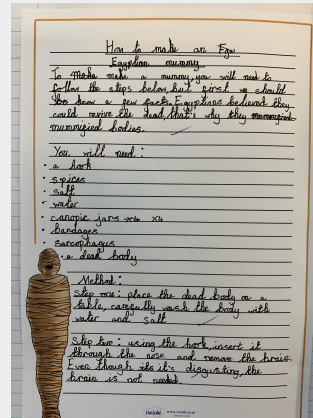 How to make an Egy
Egyptian mummy
To make make a mummy, you will need to
follow the steps below, but first we should
know a few facts. Egyptians believed they
could revive the dead, that's why they mummified
mummified bodies.
You will need:
• a hook
• spices
• salt
• water
• canopic jars x4 x4
• bandages
• sarcophagus
• a dead body
Method:
Step one: place the dead body on a
table, carefully wash the body with
water and salt
Step two: using the hook, insert it
through the nose and remove the brain.
Even though its it's disgusting, the
brain is not needed.
twinkl www.twinkl.co.uk